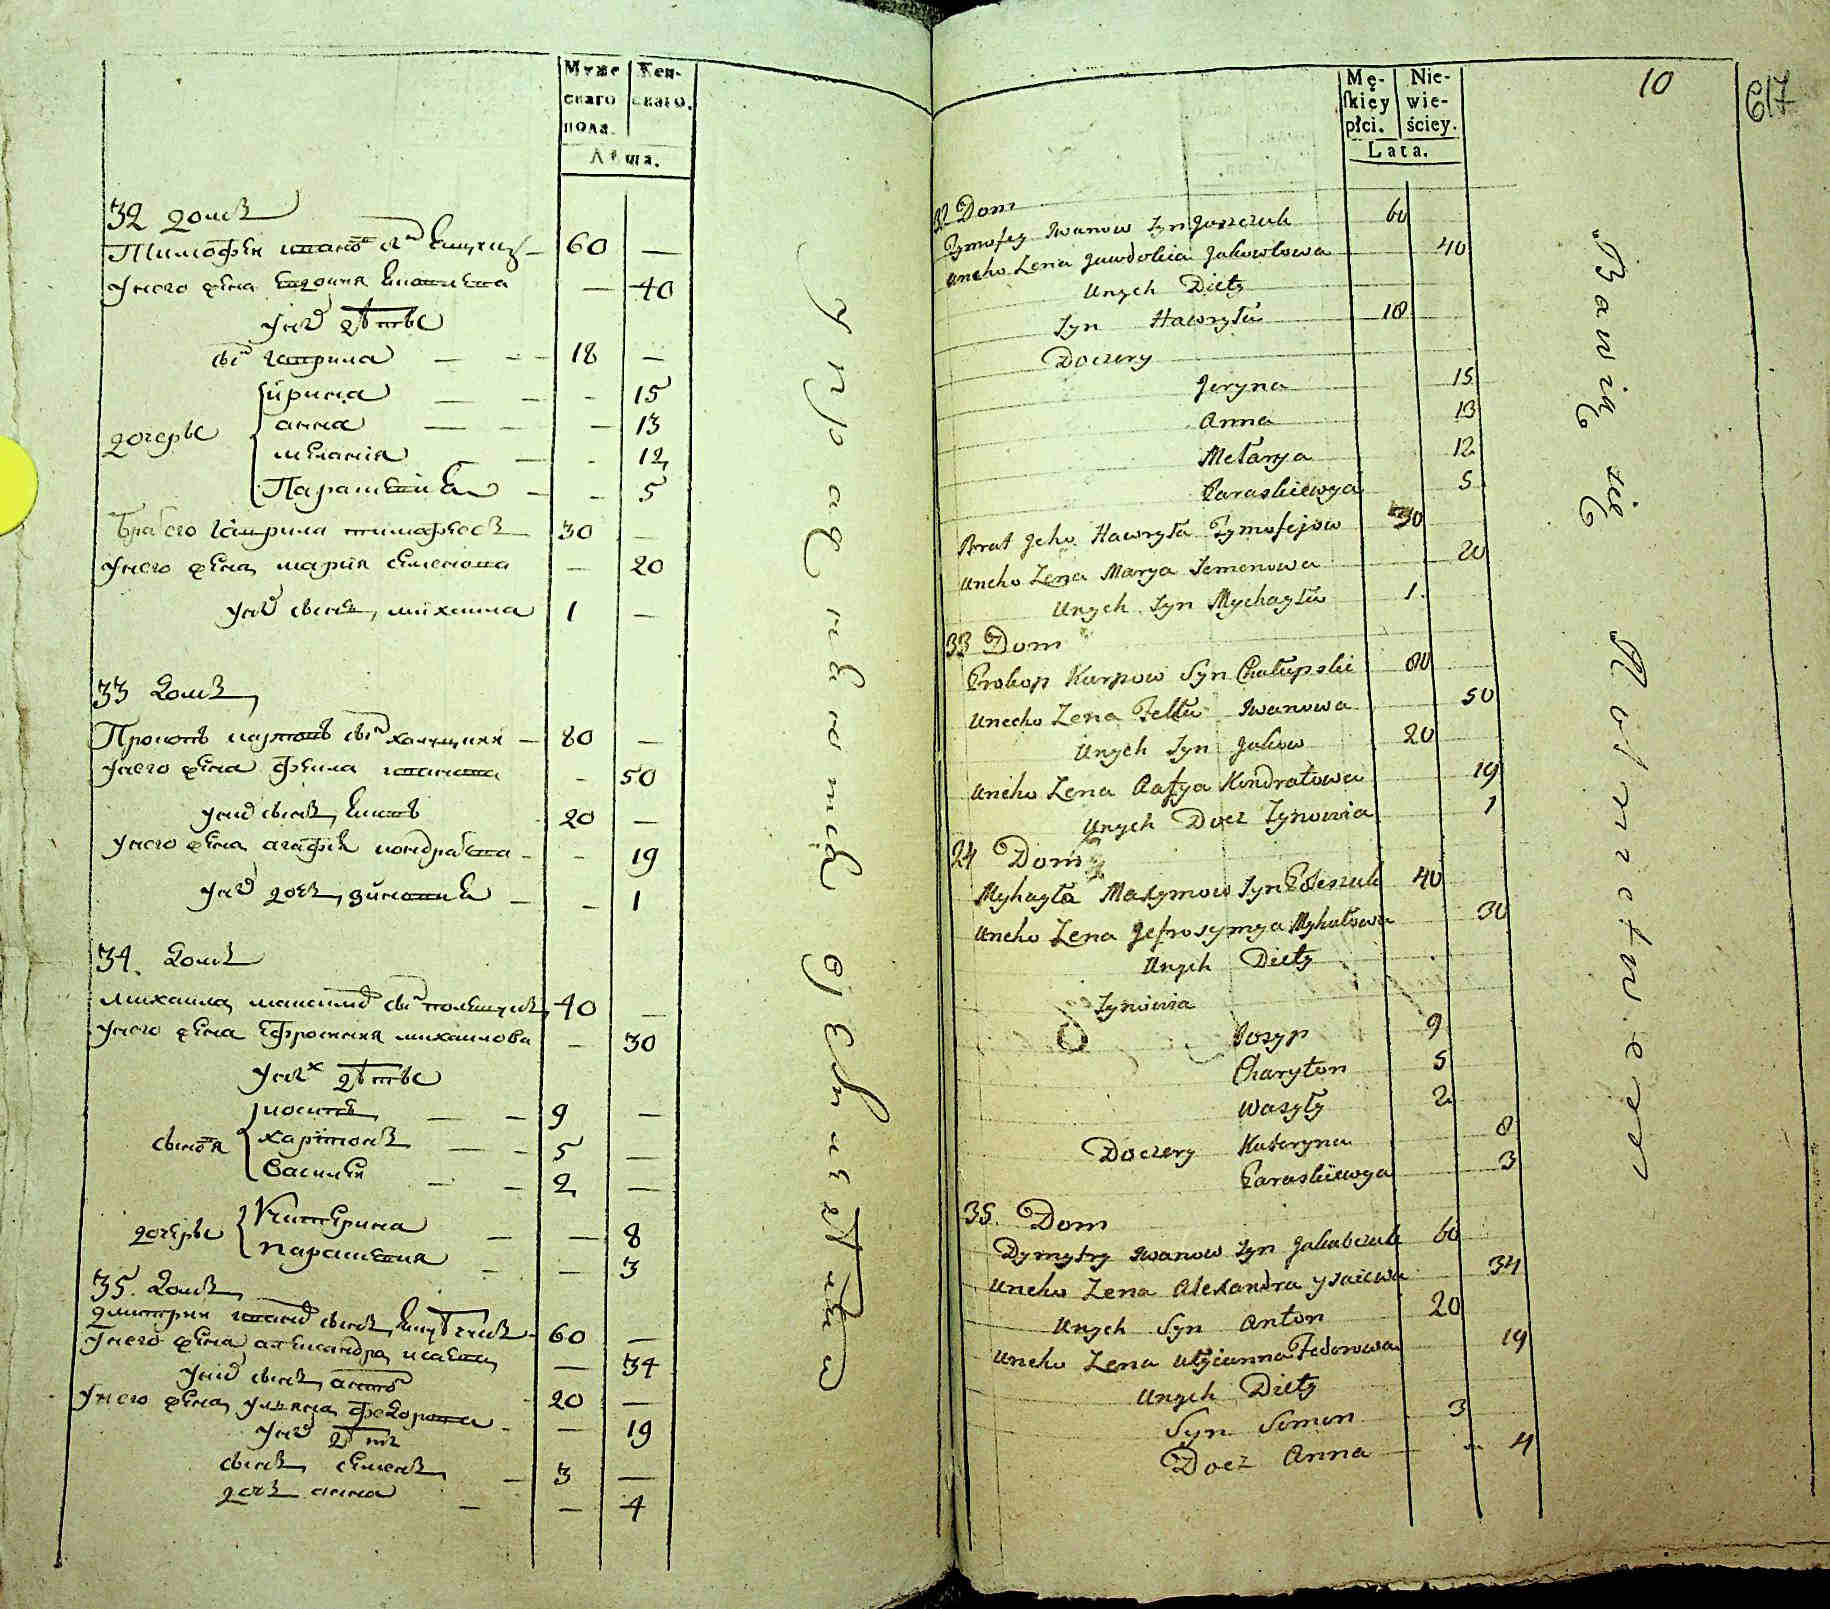 Муже
скаго
пола.
Жен-
скаго.
Лѣта.
32 домъ
Тимофей 60 —
у него жена — 40
у них дѣти
сынъ гаврила — 18 —
дочери
ирина — 15
анна — 13
меланія — 12
Параскевия — 5
братъ его гаврила тимофеевъ 30 —
у него жена мария семенова — 20
у них сынъ михаила 1 —
33 домъ
Прокопъ карповъ сынъ 80 —
у него жена фекла иванова — 50
у них сынъ яковъ 20 —
у него жена агафия кондратова — 19
у них дочь зиновия — 1
34. домъ
михаила максимов сынъ полещукъ 40 —
у него жена ефросиния михаилова — 30
у них дѣти
сыновя
иосипъ 9 —
харитонъ 5 —
василей 2 —
дочери
катерина — 8
параскевия — 3
35. домъ
дмитрий иванов сынъ якубчикъ 60 —
у него жена александра исаева — 34
у них сынъ антон 20 —
у него жена ульяна федорова — 19
у них дѣти
сынъ семенъ 3 —
дочь анна — 4
упражняются
Mę-
skiey
płci.
Nie-
wie-
ściey.
Lata.
10
617
32 Dom
Tymofey Iwanow Syn Juszczuk 60
Uneho Zena Jawdokia Jakowłowa 40
Unych Diety
Syn Hawryła 18
Doczery
Jeryna 15
Anna 13
Mełanya 12
Paraskiewya 5
Brat Jeho Hawryła Tymofejow 30
Uneho Zena Marya Semenowa 20
Unych Syn Mychayła 1.
33 Dom
Prokop Karpow Syn Chałupski 80
Uneho Zena Fekła Iwanowa 50
Unych Syn Jakow 20
Uneho Zena Aafya Kondratowa 19
Unych Docz Zynowia 1
24 Dom
Myhayła Maxymow Syn Poleszuk 40
Uneho Zena Jefrosymya Myhałowa 30
Unych Diety
Synowia
Josyp 9
Charyton 5
Wasyły 2
Doczery Kateryna 8
Paraskiewya 3
35. Dom
Dymytry Iwanow Syn Jakubczuk 60
Uneho Zena Alexandra ysaiewa 34
Unych Syn Anton 20
Uneho Zena Ulyianna Fedorowa 19
Unych Diety
Syn Semen 3
Docz Anna 4
Bawią się Rolnictwem